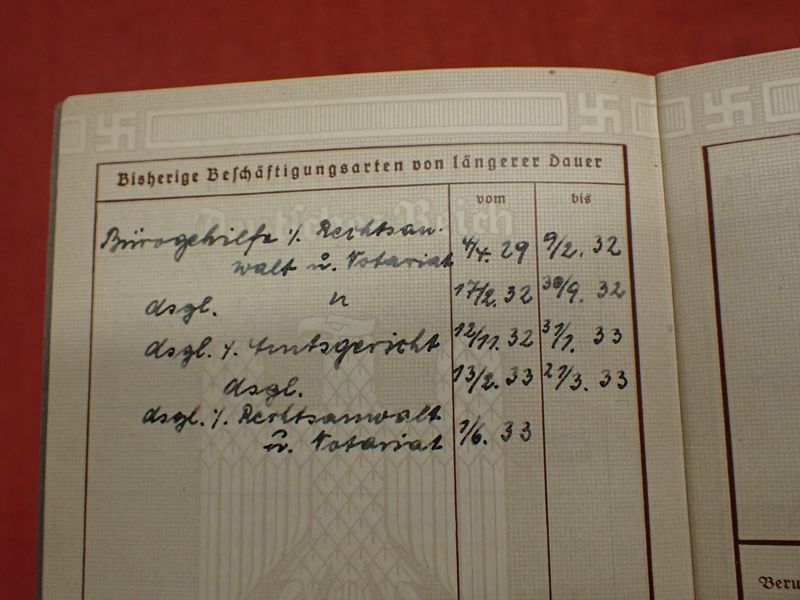 Bisherige Beschäftigungsarten von längerer Dauer
vom bis
Bürogehilfe i/. Rechtsan-
walt u. Notariat 4/4. 29 9/2. 32
dsgl. " 17/2. 32 30/9. 32
dsgl. i/. Amtsgericht 12/11. 32 31/1. 33
dsgl. 13/2. 33 21/3. 33
dsgl. i/. Rechtsanwalt
u. Notariat 1/6. 33
Deutsches Reich
Beru